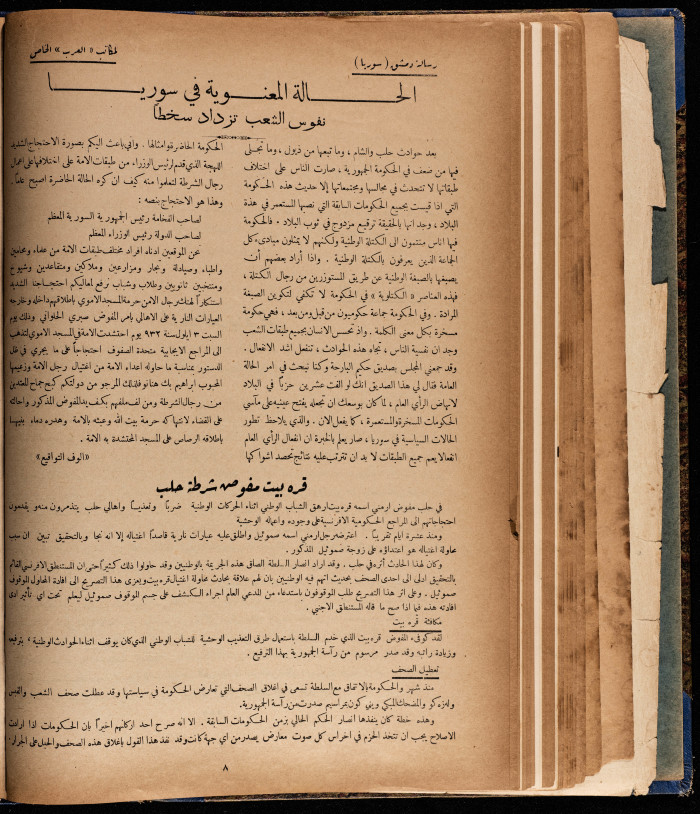 رسالة دمشق ( سوريا )
لمكاتب « العرب » الخاص
الحالة المعنوية في سوريا
نفوس الشعب تزداد سخطاً
بعد حوادث حلب والشام ، وما تبعها من ذيول ، وما تجلى
فيها من ضعف في الحكومة الجمهورية ، صارت الناس على اختلاف
طبقاتها لا تتحدث في مجالسها ومجتمعاتها إلا حديث هذه الحكومة
التي اذا قيست بجميع الحكومات السابقة التي نصبها المستعمر في هذه
البلاد ، وجد انها بالحقيقة ترقيع مزدوج في ثوب البلاد . فالحكومة
فيها اناس ينتمون الى الكتلة الوطنية ولكنهم لا يمثلون مبادىء كل
الجماعة الذين يعرفون بالكتلة الوطنية . واذا أراد بعضهم أن
يصبغها بالصبغة الوطنية عن طريق المستوزرين من رجال الكتلة ،
فهذه العناصر « الكتلوية » في الحكومة لا تكفي لتكوين الصبغة
المرادة . وفي الحكومة جماعة حكوميون من قبل ومن بعد ، فهي حكومة
مسخرة بكل معنى الكلمة . واذ تحسس الانسان بجميع طبقات الشعب
وجد ان نفسية الناس ، تجاه هذه الحوادث ، تنفعل اشد الانفعال .
وقد جمعني المجلس بصديق حكيم البارحة وكنا نبحث في امر الحالة
العامة قال لي هذا الصديق انك لو الفت عشرين حزباً في البلاد
لانهاض الرأي العام ، لما كان بوسعك ان تجعله يفتح عينيه على مآسي
الحكومات المسخرة والمستعمرة ، كما يفعل الان . والذي يلاحظ تطور
الحالات السياسية في سوريا ، صار يعلم بالخبرة ان انفعال الرأي العام
انفعالا يعم جميع الطبقات لا بد ان تترتب عليه نتائج تحصد اشواكها
الحكومة الحاضرة وامثالها . واني باعث اليكم بصورة الاحتجاج الشديد
اللهجة الذي قدم لرئيس الوزراء من طبقات الامة على اختلافها على اعمال
رجال الشرطة لتعلموا منه كيف ان كره الحالة الحاضرة اصبح عاماً .
وهذا هو الاحتجاج بنصه :
لصاحب الفخامة رئيس الجمهورية السورية المعظم
لصاحب الدولة رئيس الوزراء المعظم
نحن الموقعين ادناه افراد مختلف طبقات الامة من علماء ومحامين
واطباء وصيادلة وتجار ومزارعين وملاكين ومتقاعدين وشيوخ
ومنتخبين ثانويين وطلاب وشباب نرفع لمعاليكم احتجاجنا الشديد
استنكاراً لهتك رجال الامن حرمة المسجد الاموي باطلاقهم داخله وخارجه
العيارات النارية على الاهالي بامر المفوض صبري الحلواني وذلك يوم
السبت ٣ ايلول سنة ٩٣٢ يوم احتشدت الامة في المسجد الاموي لتذهب
الى المراجع الايجابية متحدة الصفوف احتجاجاً على ما يجري في ظل
الدستور بمناسبة ما حاوله اعداء الامة من اغتيال رجل الامة وزعيمها
المحبوب ابراهيم بك هنانو فلذلك المرجو من دولتكم كبح جماح المعتدين
من رجال الشرطة ومن لف لفهم بكف يد المفوض المذكور واحالته
على القضاء لانتهاكه حرمة بيت الله وعبثه بالامة وهدره دماء بنيها
باطلاقه الرصاص على المسجد المحتشدة به الامة .
«الوف التواقيع»
قره بيت مفوض شرطة حلب
في حلب مفوض ارمني اسمه قره بيت ارهق الشباب الوطني اثناء الحركات الوطنية ضرباً وتعذيباً واهالي حلب يتذمرون منه ويقدمون
احتجاجاتهم الى المراجع الحكومية الافرنسية على وجوده واعماله الوحشية
ومنذ عشرة ايام تقريباً . اعترضه رجل ارمني اسمه صموئيل واطلق عليه عيارات نارية قاصداً اغتياله إلا انه نجا وبالتحقيق تبين ان سبب
محاولة اغتياله هو اعتداؤه على زوجة صموئيل المذكور .
وكان لهذا الحادث أثره في حلب . وقد اراد انصار السلطة الصاق هذه الجريمة بالوطنيين وقد حاولوا ذلك كثيراً حتى ان المستنطق الافرنسي القائم
بالتحقيق ادلى الى احدى الصحف بحديث اتهم فيه الوطنيين بان لهم علاقة بحادث محاولة اغتيال قره بيت ويعزى هذا التصريح الى افادة المحاول الموقوف
صموئيل . وعلى اثر هذا التصريح طلب الموقوفون باستدعاء من المدعي العام اجراء الكشف على جسم الموقوف صموئيل ليعلم تحت اي تأثير ادى
افادته هذه فيما اذا صح ما قاله المستنطق الاجنبي .
مكافئة قره بيت
لقد كوفىء المفوض قره بيت الذي خدم السلطة باستعمال طرق التعذيب الوحشية للشباب الوطني الذي كان يوقف اثناء الحوادث الوطنية ، بترفيعه
وزيادة راتبه وقد صدر مرسوم من رآسة الجمهورية بهذا الترفيع .
تعطيل الصحف
منذ شهر والحكومة بالاتفاق مع السلطة تسعى في اغلاق الصحف التي تعارض الحكومة في سياستها وقد عطلت صحف الشعب والقبس
والمضحك المبكي وبني كون بمراسيم صدرت من رآسة الجمهورية.
وهذه خطة كان ينفذها انصار الحكم الحالي بزمن الحكومات السابقة . الا انه صرح احد اركانهم اخيراً بان الحكومات اذا ارادت
الاصلاح يجب ان تتخذ الحزم في اخراس كل صوت معارض يصدر من اي جهة كانت وقد نفذ هذا القول باغلاق هذه الصحف والحبل على الجرار .
٨